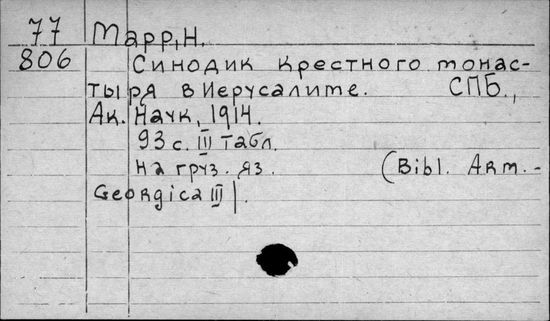 77 Марр, Н.
806 Синодик Крестного монас-
тыря в Иерусалиме. СПБ.,
Ак. Наук, 1914.
93 с. III табл.
на груз. яз. (Bibl. Arm.-
Georgica III).